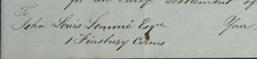 for an early Settlement of
To
John Louis Lemmé Esqre Your
1 Finsbury Circus